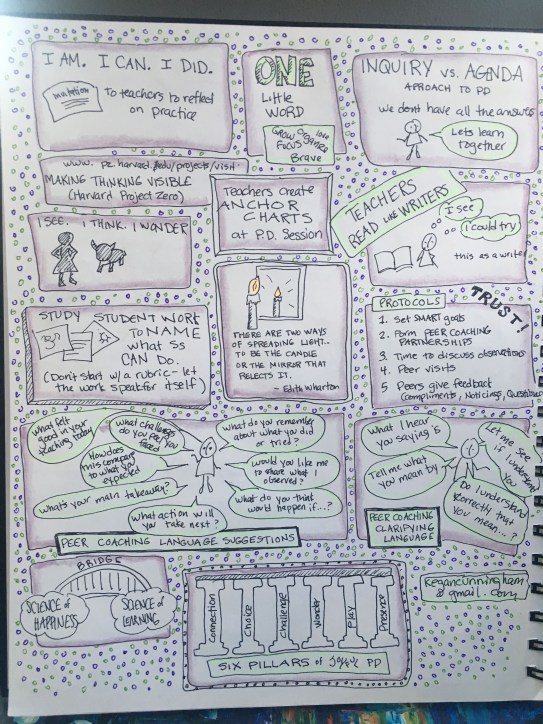 I AM. I CAN. I DID.
invitation
To teachers to reflect
on practice
ONE
Little
WORD
GROW Organize love
FOCUS
Brave
INQUIRY vs. AGENDA
APROACH TO PD
we dont have all the answers
Lets learn
together
www. pz.harvard.edu/projects/visi
MAKING THINKING VISIBLE
(Harvard Project Zero)
Teachers Create
ANCHOR
CHARTS
at P.D. Session
TEACHERS
READ LIKE WRITERS
I see
I could try
this as a writer
I SEE. I THINK. I WONDER
STUDY STUDENT WORK
TO NAME
what Ss
CAN DO.
(Don't start w/ a rubric - let
the work speak for itself)
THERE ARE TWO WAYS
OF SPREADING LIGHT..
TO BE THE CANDLE
OR THE MIRROR THAT
REFLECTS IT.
- Edith Wharton
PROTOCOLS
TRUST!
1. Set SMART goals
2. Form PEER COACHING
PARTNERSHIPS
3. Time to discuss observations
4. Peer visits
5 Peers give feedback
(Compliments, Noticings, Questions)
What felt
good in your
teaching today
What challenge
do you feel you
faced
What do you remember
about what you did
or tried?
How does
this compare
to what you
expected
would you like me
to share what I
observed?
what's your main takeaway?
What do you think
would happen if...?
What action will
you take next?
PEER COACHING LANGUAGE SUGGESTIONS
What I hear
you saying is
Let me see
if I understand
you
Tell me what
you mean by
Do I understand
correctly that
you mean...?
PEER COACHING
CLARIFYING
LANGUAGE
BRIDGE
SCIENCE of
HAPPINESS
SCIENCE of
LEARNING
Connection
Choice
Challenge
Wonder
Play
Presence
SIX PILLARS of Joyful PD
Regancunningham
@gmail.com